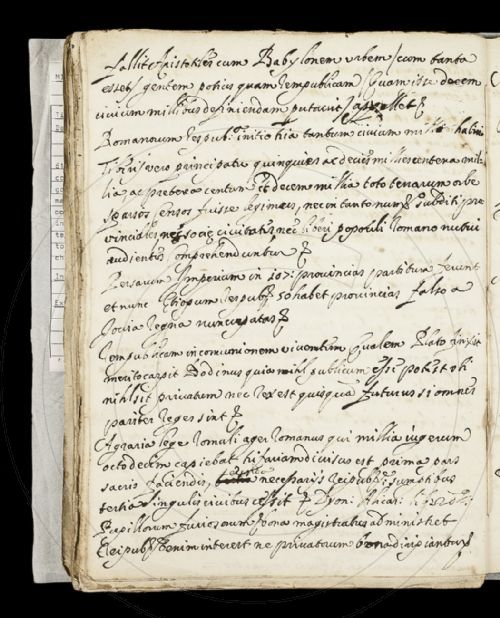 Fallit Aristoteles cum Babylonem urbem (cum tanta
esset) gentem potius quam rempublicam (quam isse decem
civium millibus definiendam putavit) appellet
Romanorum respub: initio tria tantum civium millia habuit
Tiberii vero principatu quinquies ac decies millies centena mil-
lia, ac preterea centum et decem millia toto terrarum orbe
sparsos, censos fuisse legimus, nec in tanto numero subditi pro
vinciales nec sociae civitates nec liberi populi Romano nutui
audientes comprehenduntur
Persarum Imperium in 207: provincias partitum ferunt
et nunc Ethiopum respub: 50 habet provincias falso a
Jovio regna nuncupatas
Rempublicam in communionem viventium qualem Plato finxit
merito carpit Bodinus quia nihil publicum esse potest ubi
nihil sit privatum nec rex est quisquam futurus si omnes
pariter reges sint
Agraria lege Romuli ager Romanus qui millia iugerum
octodecim capiebat trifariam divisus est prima pars
sacris faciendis, necessariis reipub: sumptibus
tertia singulis civibus cessit Dyon: Halicar:
Pupillorum furiosorum bona magistratus administret
Reipub: enim interest ne privatorum bona diripiantur